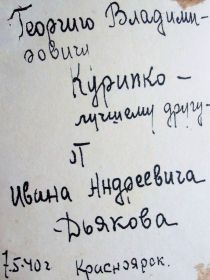 Георгию Владими-
ровичу
Курипко –
лучшему другу-
от
Ивана Андреевича
Дьякова
7.5.40 г Красноярск.